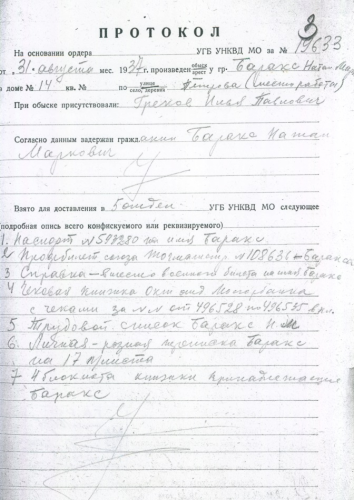 3
ПРОТОКОЛ
На основании ордера УГБ УНКВД МО за № 19633
от „31„ августа мес. 1937 г. произведен обыск арест у гр. Баракс Натан Мар
в доме № 14 кв. № по улице село, деревня Петрова (место работы)
При обыске присутствовали: Грехов Илья Павлович
Согласно данным задержан гражданин Баракс Натан
Маркович
Взято для доставления в 5 отдел УГБ УНКВД МО следующее
(подробная опись всего конфискуемого или реквизируемого)
1. Паспорт № 597280 на имя Баракс
2 Профбилет союза № 108636 – Баракса
3 Справка – вместо военного билета на имя Баракс
4 Чековая книжка
с чеками за №№ от 496528 по 496535 вкл.
5 Трудовой список Баракс Н М
6. Личная - разная переписка Баракс
на 17 листа
7 4 блокнота книжки принадлежащие
Баракс